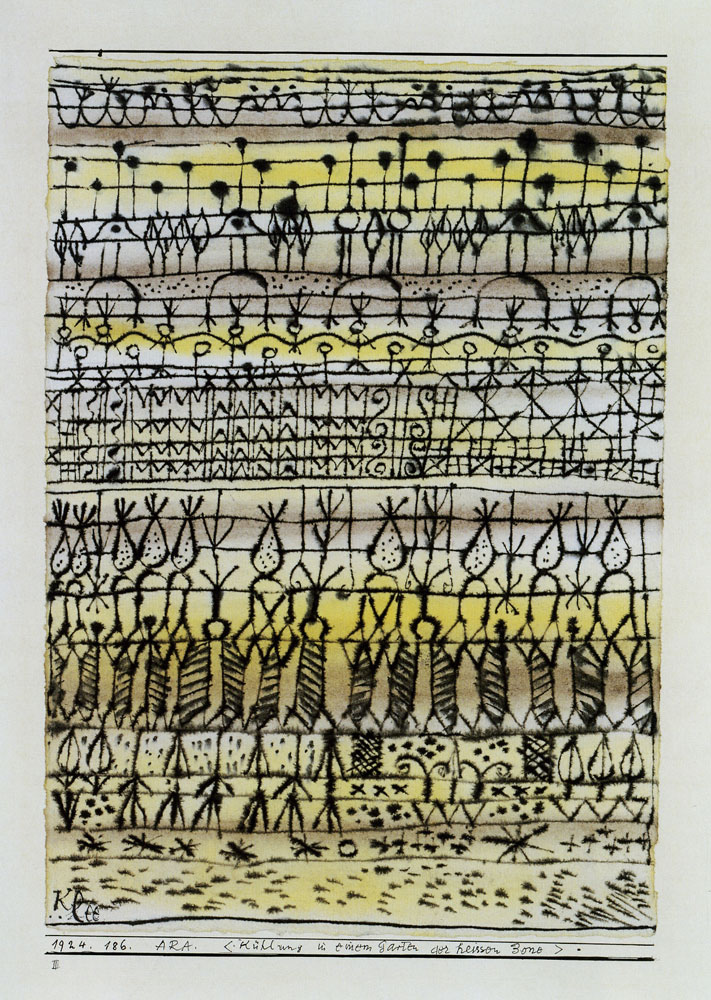 Klee
1924. 186. ARA. <Kühlung in einem Garten der heissen Zone>.
III